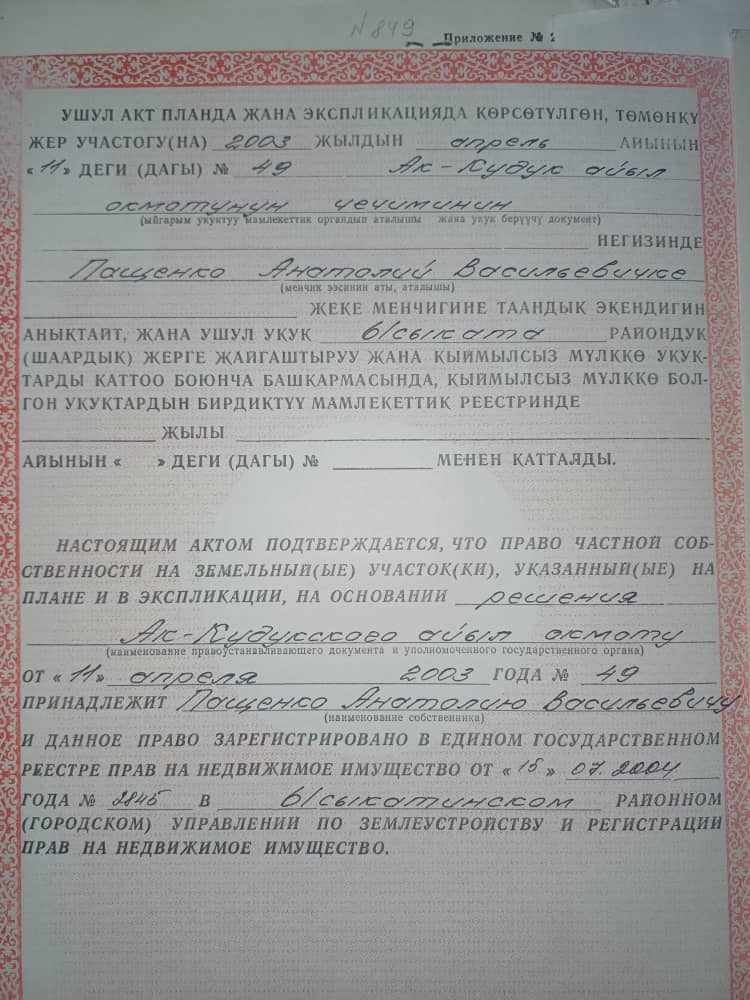 N 849
Приложение № 2
УШУЛ АКТ ПЛАНДА ЖАНА ЭКСПЛИКАЦИЯДА КӨРСӨТҮЛГӨН, ТӨМӨНКҮ
ЖЕР УЧАСТОГУ(НА) 2003 ЖЫЛДЫН апрель АЙЫНЫН
«11» ДЕГИ (ДАГЫ) № 49 Ак-Кудук айыл
окмотунун чечиминин
(ыйгарым укуктуу мамлекеттик органдын аталышы жана укук берүүчү документ)
НЕГИЗИНДЕ
Пащенко Анатолий Васильевичке
(менчик ээсинин аты, аталышы)
ЖЕКЕ МЕНЧИГИНЕ ТААНДЫК ЭКЕНДИГИН
АНЫКТАЙТ, ЖАНА УШУЛ УКУК б/сыката РАЙОНДУК
(ШААРДЫК) ЖЕРГЕ ЖАЙГАШТЫРУУ ЖАНА КЫЙМЫЛСЫЗ МҮЛККӨ УКУК-
ТАРДЫ КАТТОО БОЮНЧА БАШКАРМАСЫНДА, КЫЙМЫЛСЫЗ МҮЛККӨ БОЛ-
ГОН УКУКТАРДЫН БИРДИКТҮҮ МАМЛЕКЕТТИК РЕЕСТРИНДЕ
ЖЫЛЫ
АЙЫНЫН « » ДЕГИ (ДАГЫ) № МЕНЕН КАТТАЛДЫ.
НАСТОЯЩИМ АКТОМ ПОДТВЕРЖДАЕТСЯ, ЧТО ПРАВО ЧАСТНОЙ СОБ-
СТВЕННОСТИ НА ЗЕМЕЛЬНЫЙ(ЫЕ) УЧАСТОК(КИ), УКАЗАННЫЙ(ЫЕ) НА
ПЛАНЕ И В ЭКСПЛИКАЦИИ, НА ОСНОВАНИИ решения
Ак-Кудукского айыл окмоту
(наименование правоустанавливающего документа и уполномоченного государственного органа)
ОТ «11» апреля 2003 ГОДА № 49
ПРИНАДЛЕЖИТ Пащенко Анатолию Васильевичу
(наименование собственника)
И ДАННОЕ ПРАВО ЗАРЕГИСТРИРОВАНО В ЕДИНОМ ГОСУДАРСТВЕННОМ
РЕЕСТРЕ ПРАВ НА НЕДВИЖИМОЕ ИМУЩЕСТВО ОТ «15» 07.2004
ГОДА № 2845 В б/сыкатинском РАЙОННОМ
(ГОРОДСКОМ) УПРАВЛЕНИИ ПО ЗЕМЛЕУСТРОЙСТВУ И РЕГИСТРАЦИИ
ПРАВ НА НЕДВИЖИМОЕ ИМУЩЕСТВО.